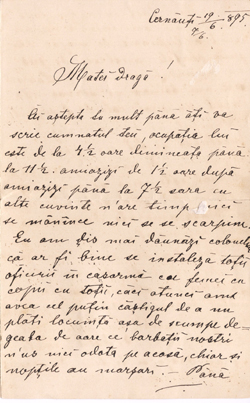 Cernăuți 19/6 895.
7/6.
Matei Dragă!
Ai aștepta la mult până ăți va
scrie cumnatul teu, ocupația lui
este de la 4½ oare dimineața până
la 11½ amiazizi de 1½ oare după
amiazizi până la 7½ sara cu
alte cuvinte n'are timp nici
se mănînce nici se se scarpine.
Eu am zis mai daunăzi
că ar fi bine se se instaleze toții
oficirii în casarmă cu femei cu
copii cu toții, căci atunci amă
avea cel puțin câștigul de a nu
plati locuința așa de scumpe de-
geaba de oare ce bărbații noștri
nus nici odata pe acasă, chiar și
nopțile au marșuri. — Până